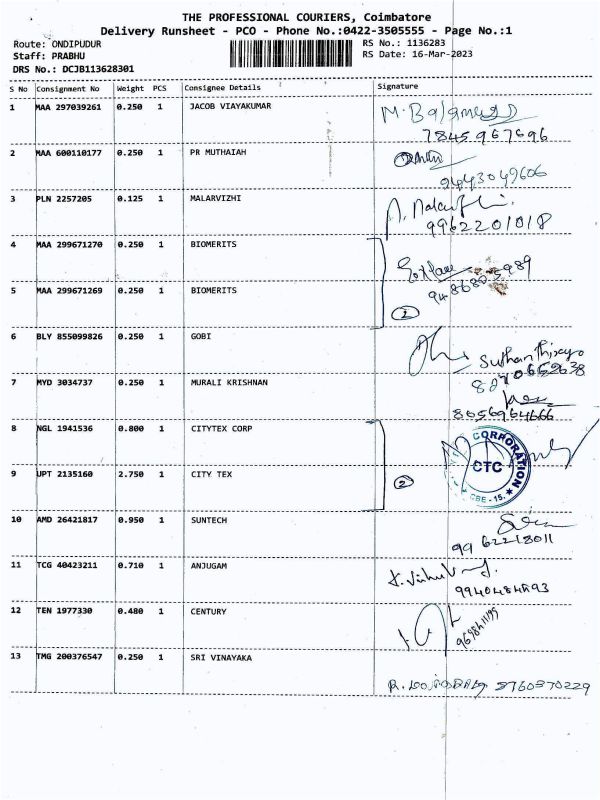 THE PROFESSIONAL COURIERS, Coimbatore
Delivery Runsheet - PCO - Phone No.:0422-3505555 - Page No.:1
Route: ONDIPUDUR RS No.: 1136283
Staff: PRABHU RS Date: 16-Mar-2023
DRS No.: DCJB113628301
S No Consignment No Weight PCS Consignee Details Signature
1 MAA 297039261 0.250 1 JACOB VIAYAKUMAR
7845967696
2 MAA 600110177 0.250 1 PR MUTHAIAH
9443049606
3 PLN 2257205 0.125 1 MALARVIZHI
9962201018
4 MAA 299671270 0.250 1 BIOMERITS
5 MAA 299671269 0.250 1 BIOMERITS
6 BLY 855099826 0.250 1 GOBI
7 MYD 3034737 0.250 1 MURALI KRISHNAN
8056964666
8 NGL 1941536 0.800 1 CITYTEX CORP
CORPORATION
CTC
CBE - 15.
9 UPT 2135160 2.750 1 CITY TEX
2
10 AMD 26421817 0.950 1 SUNTECH
9962218011
11 TCG 40423211 0.710 1 ANJUGAM
12 TEN 1977330 0.480 1 CENTURY
13 TMG 200376547 0.250 1 SRI VINAYAKA